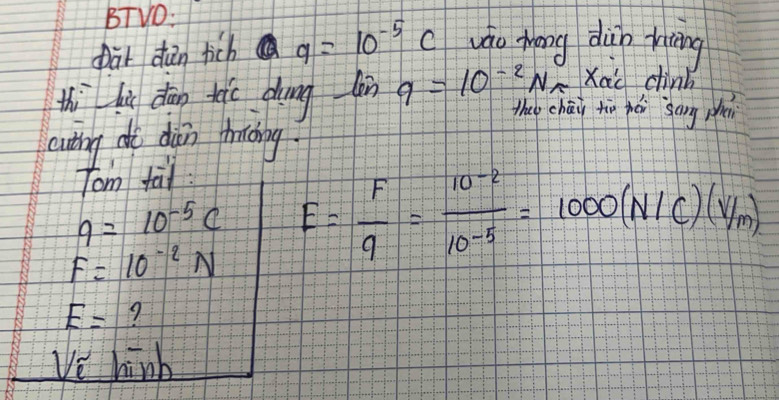 BTVD:
Đặt điện tích q = 10⁻⁵ C vào trong điện trường
thì lực điện tác dụng lên q = 10⁻² N. Xác định
theo chiều từ trái sang phải
cường độ điện trường.
Tóm tắt:
q = 10⁻⁵ C
F = 10⁻² N
E = ?
Vẽ hình
E = F/q = 10⁻²/10⁻⁵ = 1000 (N/C) (V/m)